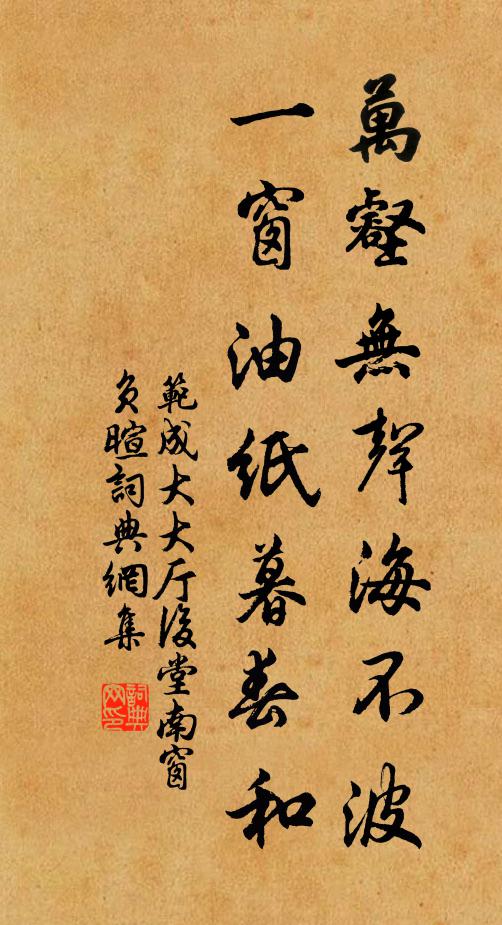 萬壑無聲海不波
一窗油紙暮春和
範成大大厅後堂南窗
负暄詞典網集
詞典网印